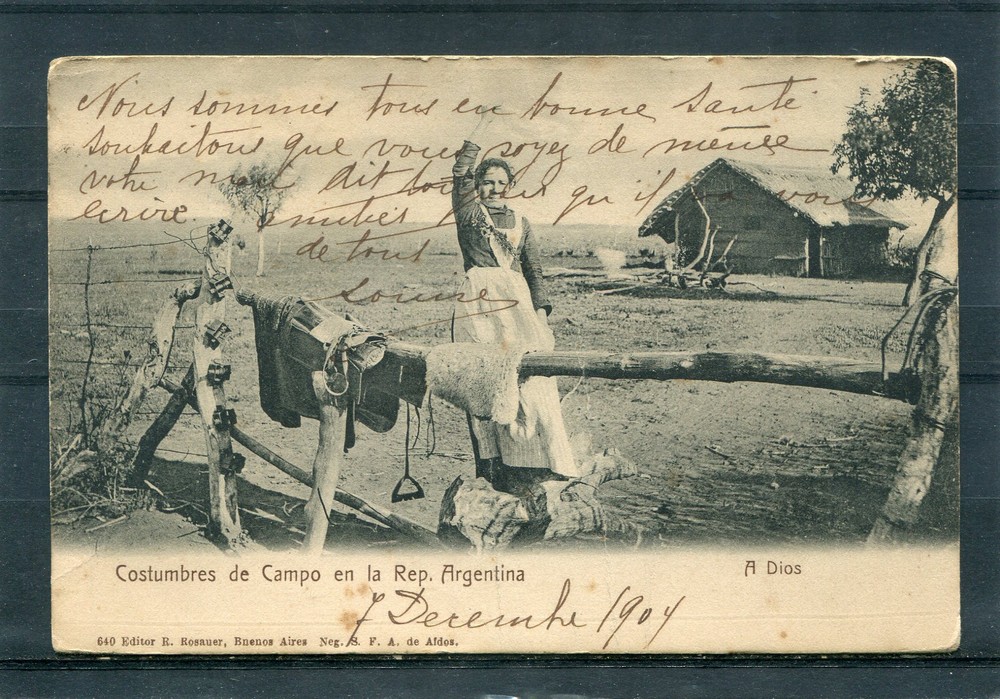 Nous sommes tous en bonne Santé
souhaitons que vous soyez de même
votre mari dit toujours qu'il va vous
écrire. amitiés
de tout
Costumbres de Campo en la Rep. Argentina
A Dios
7 Decembe 1904
640 Editor R. Rosauer, Buenos Aires Neg. S. F. A. de Afdos.